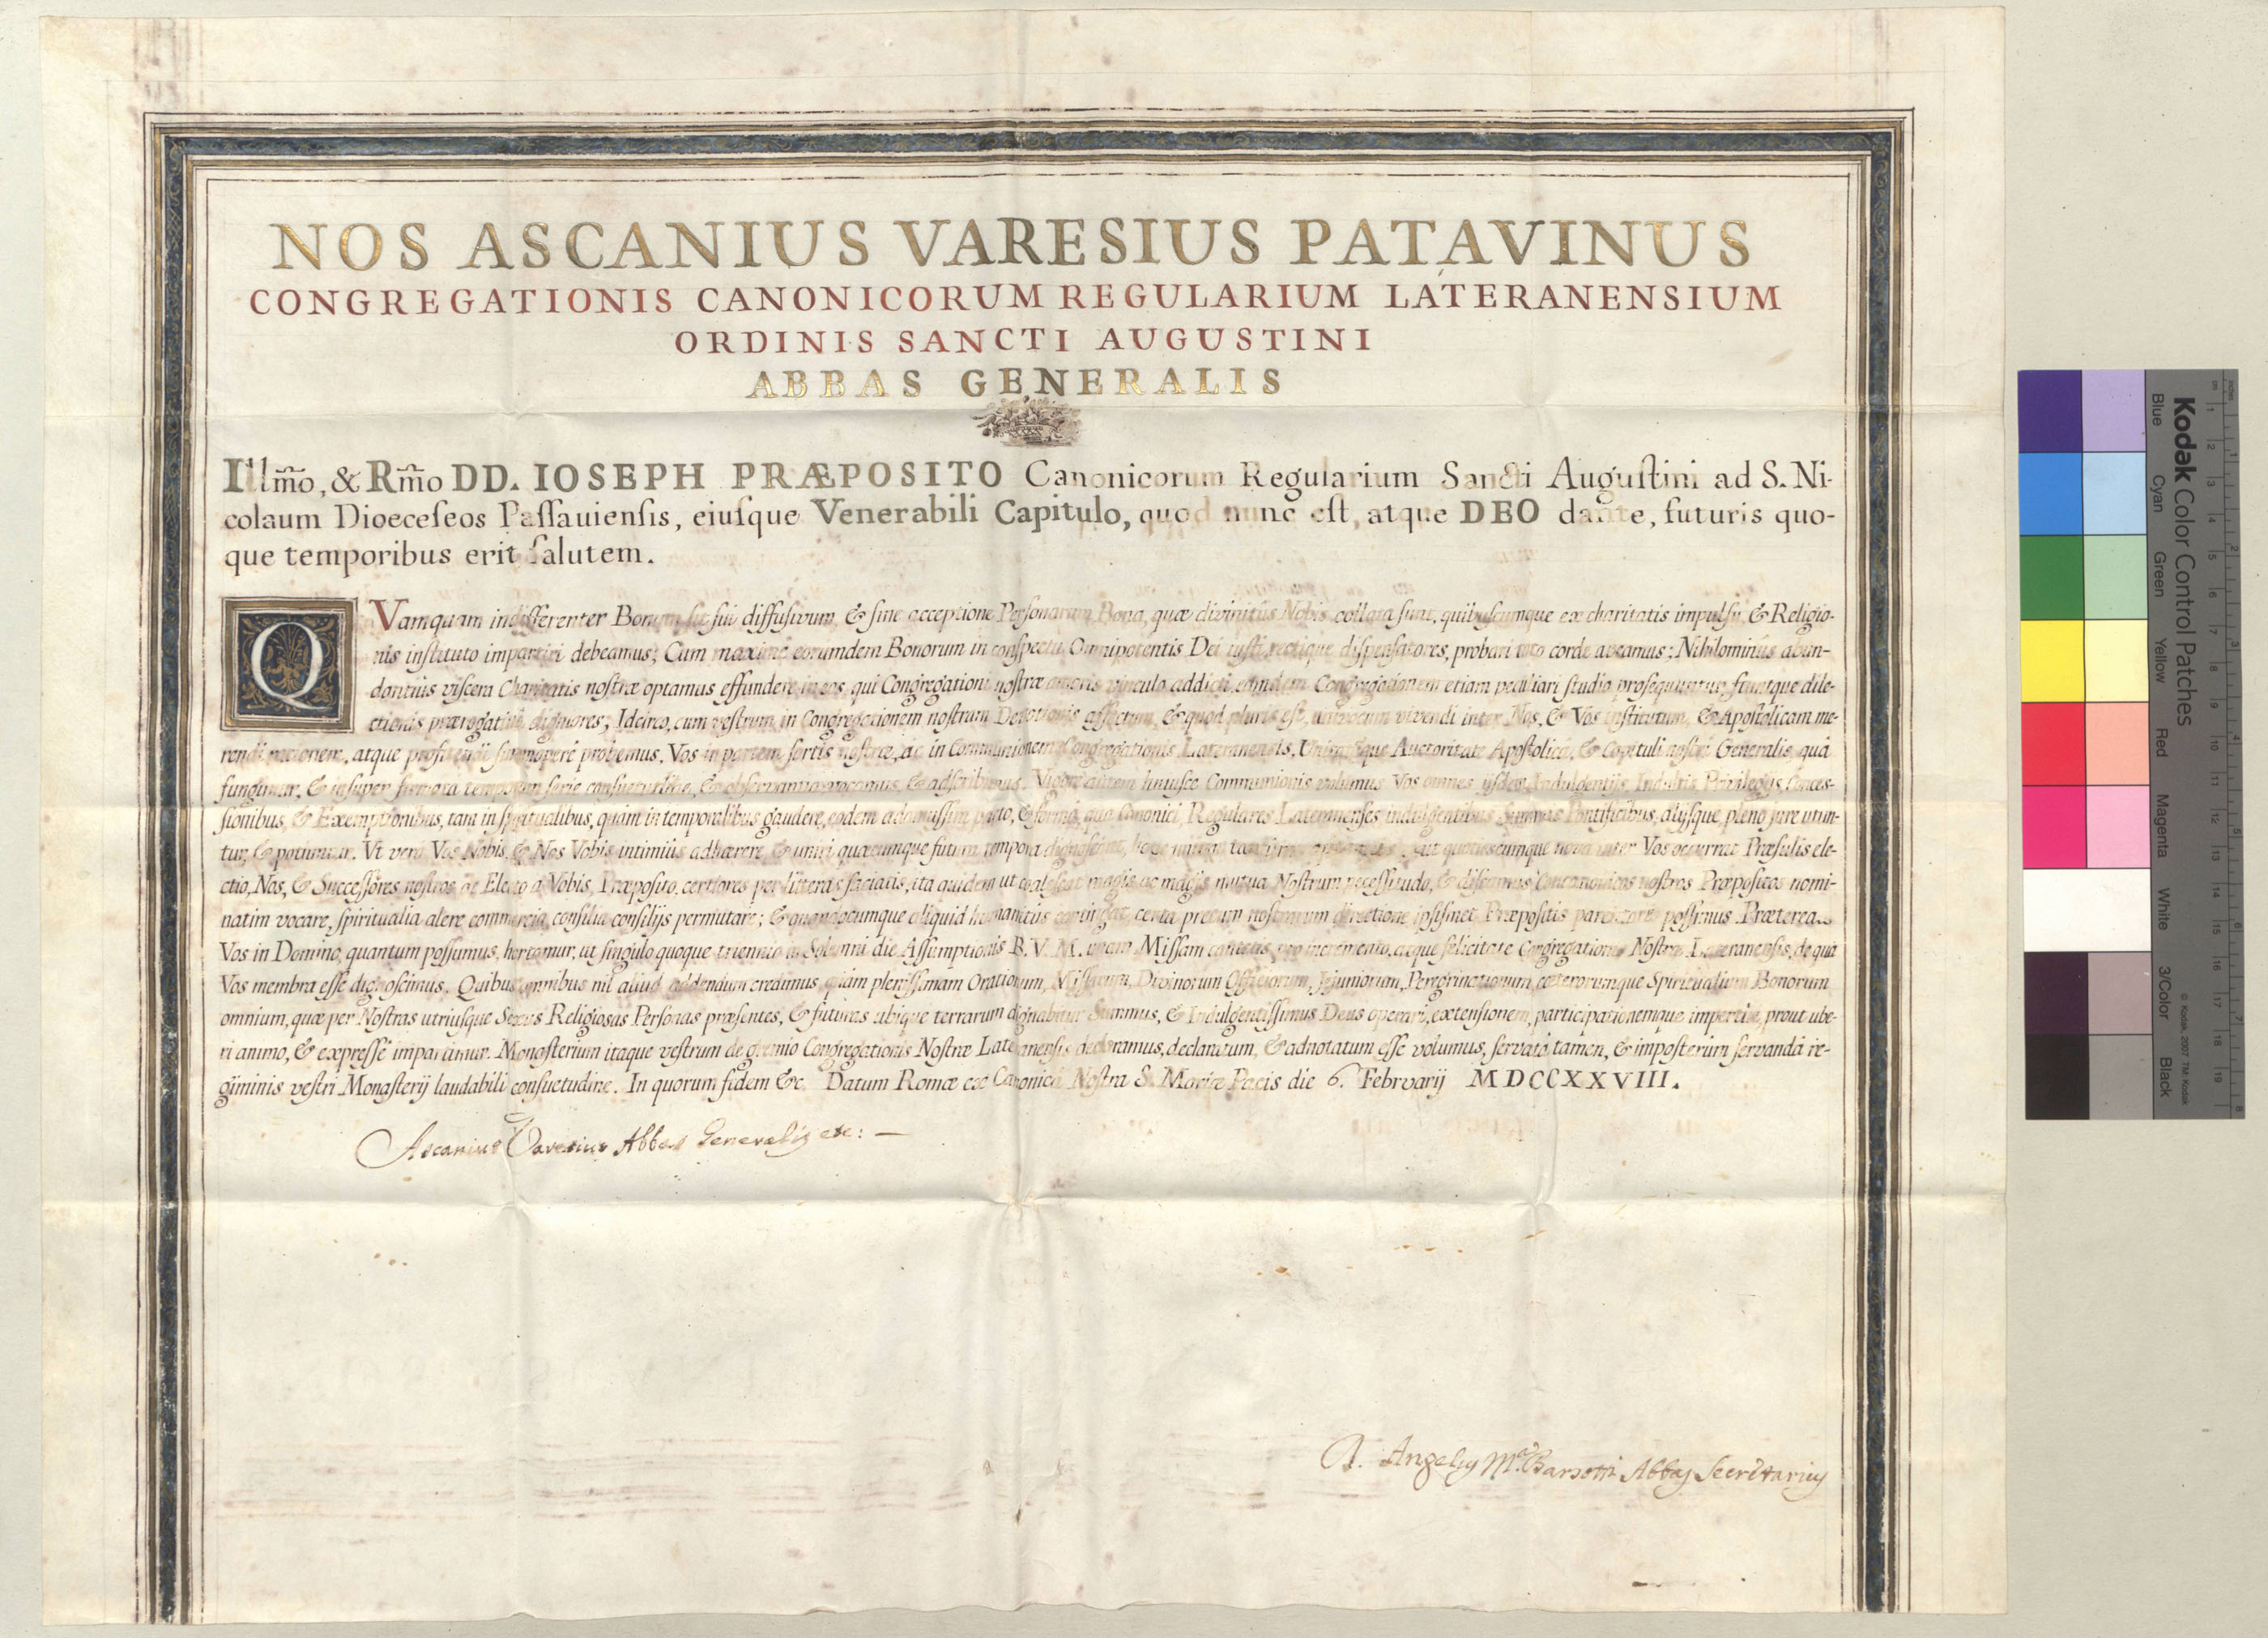 NOS ASCANIUS VARESIUS PATAVINUS
CONGREGATIONIS CANONICORUM REGULARIUM LATERANENSIUM
ORDINIS SANCTI AUGUSTINI
ABBAS GENERALIS
Illm̃o, & Rm̃o DD. IOSEPH PRÆPOSITO Canonicorum Regularium Sancti Auguſtini ad S. Ni-
colaum Dioeceſeos Paſſauienſis, eiuſque Venerabili Capitulo, quod nunc eſt, atque DEO dante, futuris quo-
que temporibus erit ſalutem.
QVamquam indifferenter Bonum ſit ſui diffuſivum, & ſine acceptione Perſonarum Bona, quæ divinitùs Nobis collata ſunt, quibuſcumque ex charitatis impulſu, & Religio-
nis inſtituto impartiri debeamus; Cum maximè eorumdem Bonorum in conſpectu Omnipotentis Dei iuſti, rectique diſpenſatores, probari toto corde aveamus: Nihilominùs abun-
dantiùs viſcera Charitatis noſtræ optamus effundere in eos, qui Congregationi noſtræ amoris vinculo addicti eamdem Congregationem etiam peculiari ſtudio proſequuntur, fiuntque dile-
ctionis prærogativâ digniores; Idcirco, cum veſtrum in Congregationem noſtram Devotionis affectum, & quod pluris eſt, vivendi inter Nos, & Vos inſtitutum, & Apoſtolicam me-
rendi rationem, atque profitendi ſummoperè probemus. Vos in partem ſortis noſtræ, ac in Communionem Congregationis Lateranensis, Auctoritate Apoſtolicâ, & Capituli noſtri Generalis, quâ
fungimur, & inſuper ſerie conſuetudine, & obſervantia vocamus, & adſcribimus. Vigore autem huiuſce Communionis volumus Vos omnes ijſdem Indulgentijs, Indultis, Privilegijs, Conceſ-
ſionibus, & Exemptionibus, tam in ſpiritualibus, quàm in temporalibus gaudere, eodem adamuſſim pacto, & formâ, qua Canonici Regulares Lateranenſes indulgentibus Summis Pontificibus, alijſque, pleno jure utun-
tur, & potiuntur. Vt verò Vos Nobis, & Nos Vobis intimiùs adhærere, & uniri quæcumque futura tempora ut quotieſcumque nova inter Vos occurret Præſulis ele-
ctio, Nos, & Succeſſores noſtros de Electo à Vobis, Præpoſito, certiores per litteras faciatis, ita quidem ut coaleſcat magis ac magis mutua Noſtrum neceſſitudo, & diſcamus Concanonicos noſtros Præpoſitos nomi-
natim vocare, ſpiritualia alere commercia, conſilia conſilijs permutare; & quandocumque aliquid humanitus contingat, certa precum noſtrarum directione ipſiſmet Præpoſitis parentare poſſimus. Præterea
Vos in Domino, quantum poſſumus, hortamur, ut ſingulo quoque triennio in Solemni die Aſſumptionis B. V. M. unam Miſſam cantetis pro incremento, atque felicitate Congregationis Noſtræ Lateranenſis, de quâ
Vos membra eſſe dignoſcimus. Quibus omnibus nil aliud addendum credimus, quàm pleniſſimam Orationum, Miſſarum, Divinorum Officiorum, Jejuniorum, Peregrinationum, cæterorumque Spiritualium Bonorum
omnium, quæ per Noſtras utriuſque Sexus Religioſas Perſonas præſentes, & futuras ubique terrarum dignabitur Summus, & Indulgentiſſimus Deus operari, extenſionem, participationemque impertiri, prout ube-
ri animo, & expreſſè impartimur. Monaſterium itaque veſtrum de gremio Congregationis Noſtræ Lateranenſis declaramus, declaratum, & adnotatum eſſe volumus, ſervatâ tamen, & impoſterùm ſervandâ re-
giminis veſtri Monaſterij laudabili conſuetudine. In quorum fidem &c. Datum Romæ ex Canonica Noſtra S. Mariæ Pacis die 6. Februarij MDCCXXVIII.
Ascanius Varesius Abbas Generalis etc: —
D. Angelus Ma. Barsotti Abbas Secretarius
Kodak Color Control Patches
Blue Cyan Green Yellow Red Magenta White 3/Color Black
© Kodak, 2007 TM: Kodak